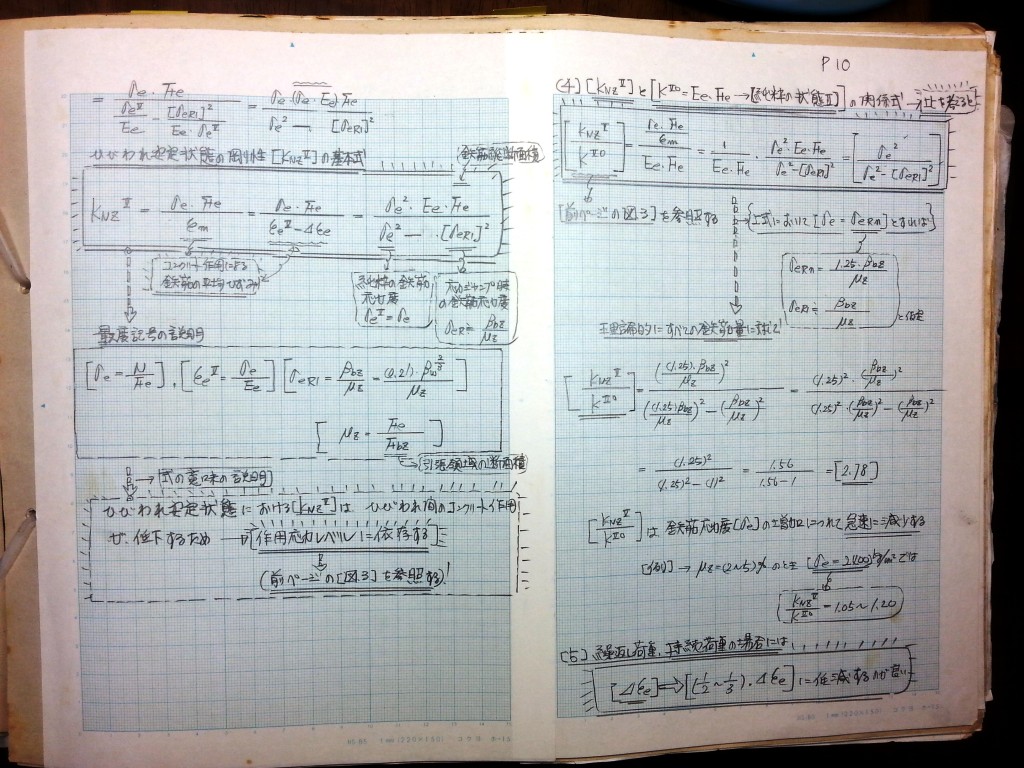 = σe・Fe / (σe^Ⅱ/Ee − [σeR1]²/Ee・σe^Ⅱ) = σe・(σe・Ee)・Fe / σe² − [σeR1]²
ひびわれ安定状態の剛性[KNZ^Ⅱ]の基本式
鉄筋の総断面積
KNZ^Ⅱ = σe・Fe / εm = σe・Fe / εe^Ⅱ−Δεe = σe²・Ee・Fe / σe² − [σeR1]²
コンクリート作用による
鉄筋の平均ひずみ
純粋の鉄筋の
応力度
σe^Ⅱ = σe
力のジャンプ時
の鉄筋応力度
σeR = βbz/μz
最度記号の説明
[σe = N/Fe]、[εe^Ⅱ = σe/Ee] [σeR1 = βbz/μz = (0.21)・βw^2/3 / μz]
[μz = Fe/Fbz]
引張領域の断面積
→ 式の意味の説明
ひびわれ安定状態における[KNZ^Ⅱ]は ひびわれ間のコンクリート作用
が、低下するため → [作用応力レベルに依存する]
(前ページの[図.3]を参照する)!
P10
(4) [KNZ^Ⅱ]と[K^Ⅱ0 = Ee・Fe → 純粋の状態Ⅱ]の関係式
[KNZ^Ⅱ/K^Ⅱ0] = (σe・Fe/εm) / Ee・Fe = 1/Ee・Fe ・ σe²・Ee・Fe / σe²−[σeR1]² = [σe² / σe²−[σeR1]²]
[前ページの図.3]を参照する
{上式において[σe = σeRn]とすれば}
σeRn = 1.25・βbz / μz
σeR1 = βbz / μz と仮定
理論的にすべての鉄筋量に対して!
[KNZ^Ⅱ/K^Ⅱ0] = ((1.25)・βbz/μz)² / ((1.25)βbz/μz)² − (βbz/μz)² = (1.25)²・(βbz/μz)² / (1.25)²・(βbz/μz)² − (βbz/μz)²
= (1.25)² / (1.25)² − (1)² = 1.56 / 1.56−1 = [2.78]
[KNZ^Ⅱ/K^Ⅱ0] は 鉄筋応力度[σe]の増加につれて 急速に減少する
[例] → μz=(2〜5)% のとき [σe = 2400]kg/cm² では
KNZ^Ⅱ/K^Ⅱ0 = 1.05〜1.20
[5] 繰返し荷重、持続荷重の場合には
[Δεe] ⇒ [(1/2〜1/3)・Δεe] に低減するのが良い